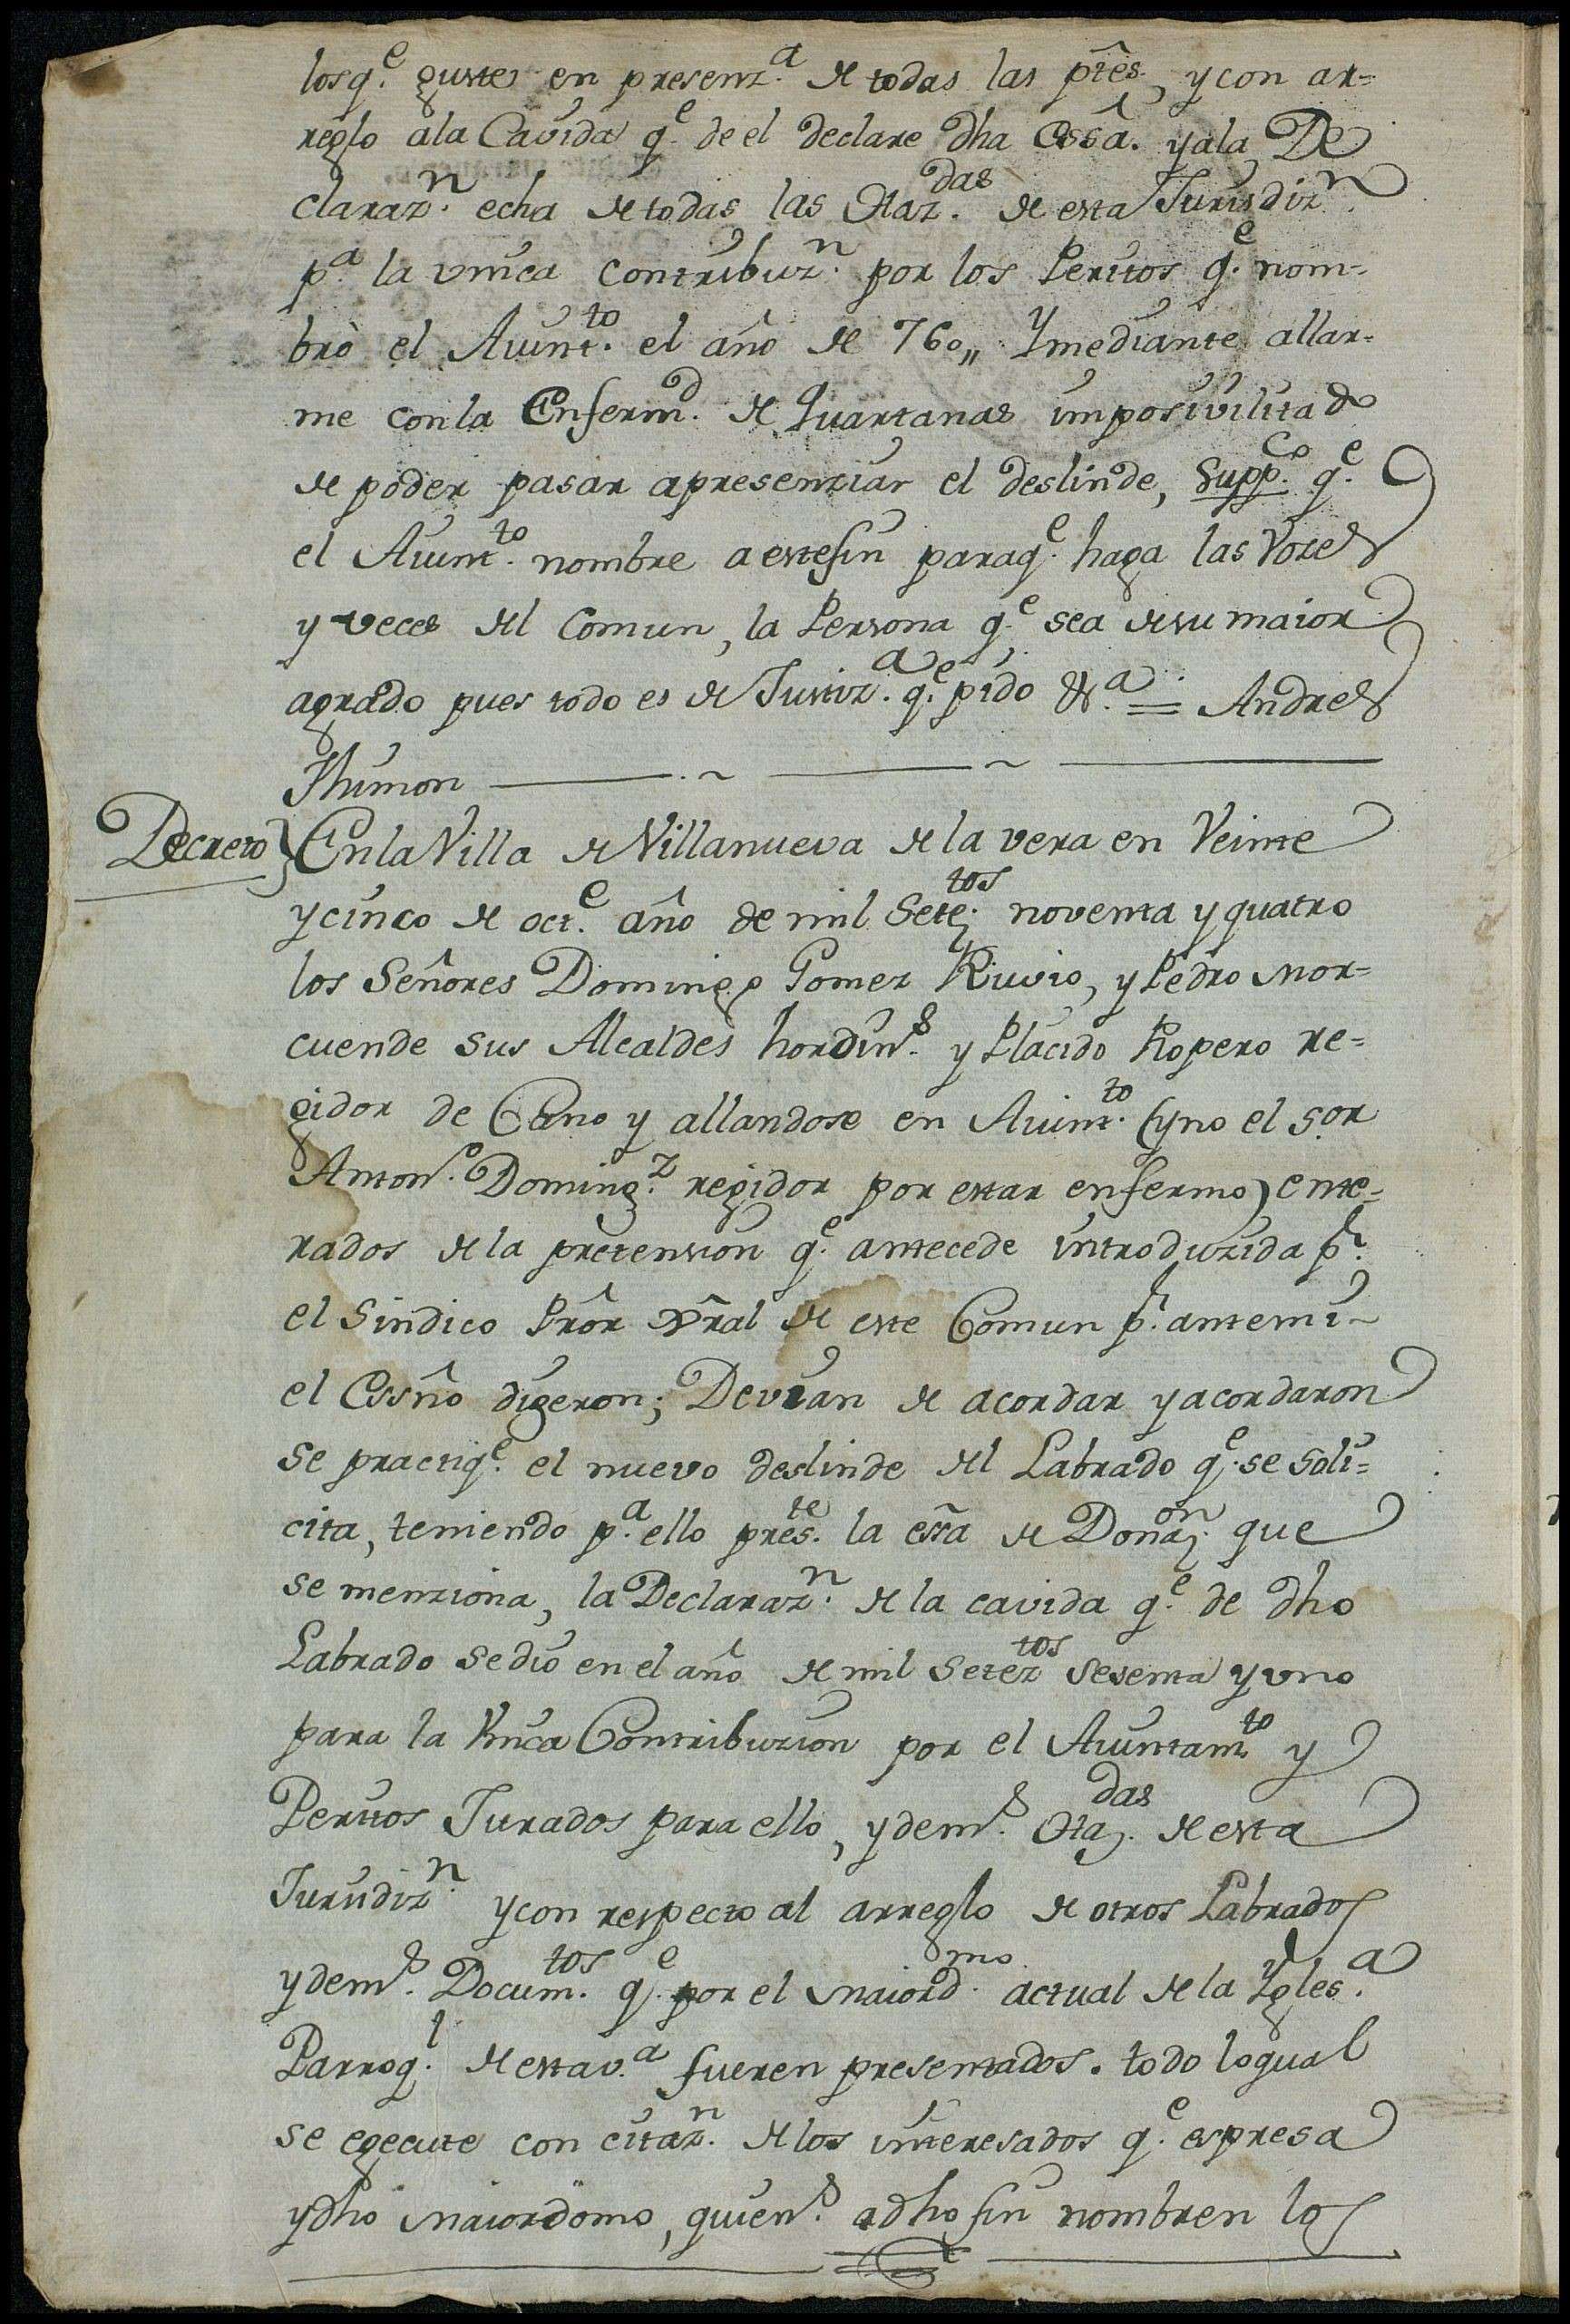 losq.e guste en presenz.a de todas las ptes, y con ar=
reglo ala Cavida q.e de el declare dha Essã. yala De
claraz.n echa de todas las Haz.das de esta Jurisdiz.n
p.a la vnica contribuz.n por los Peritos q.e nom=
brò el Aiunt.to el año de 760,, Y mediante allar=
me con la Enferm.d de Quartanas imposivilitado
de poder pasar apresenziar el deslinde, Supp.co q.e
el Aiunt.to nombre a estefin paraq.e haga las Vozes
y veces del Comun, la Persona q.e sea desu maior
agrado pues todo es de Justiz.a q.e pido &.a = Andres
Thimon
Decreto} En la Villa de Villanueva de la vera en Veinte
ycinco de oct.e año de mil Setez.tos noventa y quatro
los Señores Domingo Gomez Ruvio, y Pedro Mor=
cuende sus Alcaldes hordin.s y Placido Ropero re=
gidor de Cano y allandose en Aiunt.to (yno el Sor
Anton.o Doming.z regidor por estar enfermo) ente=
rados de la pretension q.e antecede introduzida p.r
el Sindico Prõr Grãl de este Comun p.r antemi
el Essño digeron; Devian de acordar yacordaron
se practiq.e el nuevo deslinde del Labrado q.e se soli=
cita, teniendo p.a ello pres.te la essã de Donaz.on que
se menziona, la Declaraz.n de la cavida q.e de dho
Labrado sedio en el año de mil setez.tos sesenta y vno
para la Vnica Contribuzion por el Aiuntam.to y
Peritos Jurados para ello, y dem.s Haz.das de esta
Jurisdiz.n y con respecto al arreglo de otros Labrados
y dem.s Docum.tos q.e por el maiord.mo actual de la Ygles.a
Parroq.l de esta v.a fueren presentados. todo loqual
se egecute con citaz.n de los interesados q.e espresa
y dho maiordomo, quien.s adho fin nombren los